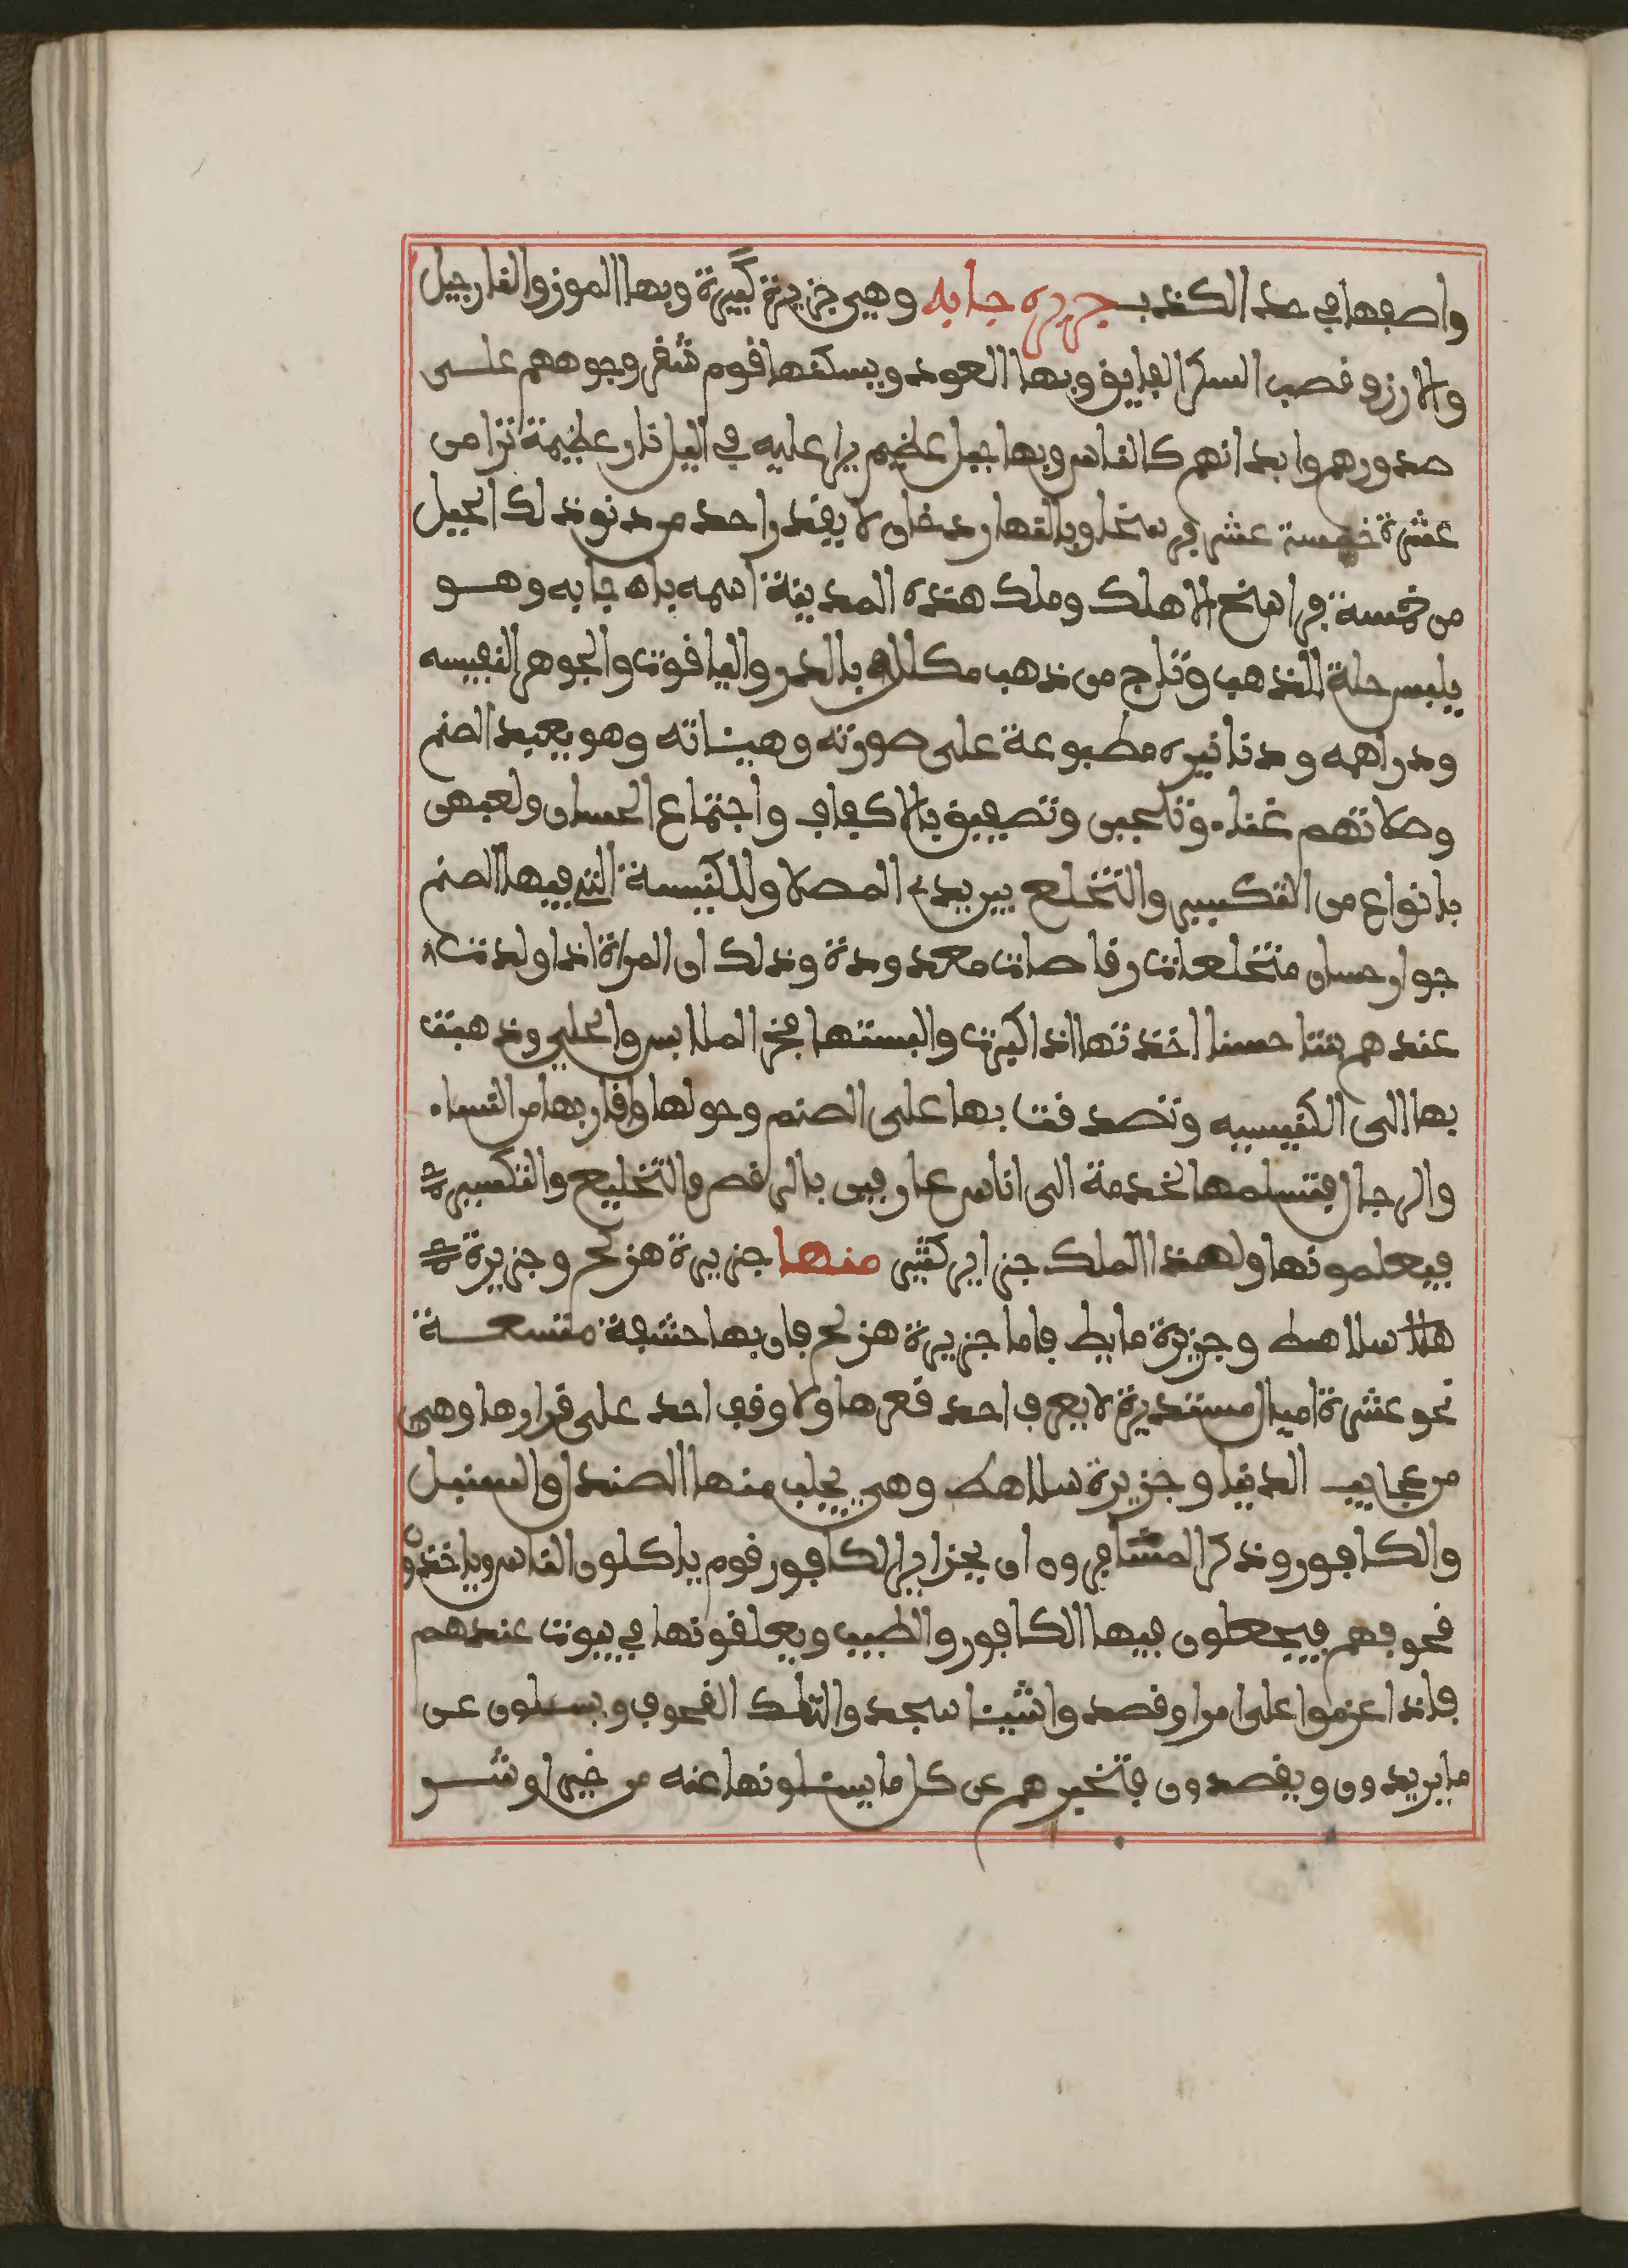 واصفها في حد الكذب جزيرة جابه وهي جزيرة كبيرة وبها الموز والنارجيل
والارز وقصب السكر الفايق وبها العود ويسكنها قوم شقر وجوههم على
صدورهم وابدانهم كالناس وبها جبل عظيم يرا عليه في اليل نار عظيمة ترا من
عشرة خمسة عشر فرسخا وبالنهار دخان لا يقدر احد من دنو ذلك الجبل
من خمسة فراسخ الا هلك وملك هذه المدينة اسمه باه جابه وهو
يلبس حلة الذهب وتاج من ذهب مكلله بالدر والياقوت والجوهر النفيسه
ودراهمه ودنانيره مطبوعة على صورته وهيئاته وهو يعبد الصنم
وصلاتهم غناء وتلحين وتصفيق بالاكفاف واجتماع الحسان ولعبهن
بانواع من التكسير والتخلع بين يدي المصلا وللكنيسة التي فيها الصنم
جوار حسان متخلعات رقاصات معدودة وذلك ان المراة اذا ولدت
عندهم بنتا حسنا اخذتها اذا كبرت والبستها فخر الملابس والحلي وذهبت
بها الى الكنيسيه وتصدقت بها على الصنم وحولها واقاربها من النساء
والرجال فتسلمها الخدمة الى اناس عارفين بالرقص والتخليع والتكسير
فيعلمونها ولهذا الملك جزاير كثير منها جزيرة هزلج وجزيرة
سلاهط وجزيرة مايط فاما جزيرة هزلج فان بها حشفة متسعة
نحو عشرة اميال مستديرة لا يعرف احد قعرها ولا وقف احد على قرارها وهي
من عجايب الدنيا وجزيرة سلاهط وهي يجلب منها الصندل والسنبل
والكافور وذكر المسافرون ان بجزاير الكافور قوم ياكلون الناس وياخذون
قحوفهم فيجعلون فيها الكافور والطيب ويعلقونها في بيوت عندهم
فاذا عزموا على امر او قصدوا شيئا سجدوا لتلك القحوف ويسئلون عن
ما يريدون ويقصدون فتخبرهم عن كل ما يسئلونها عنه من خير او شر